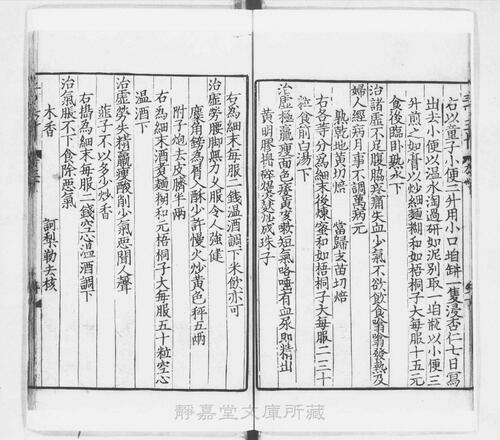 右以童子小便二升用小口坩缾一隻浸杏仁七日寫
出去小便以温水淘過研如泥別取一坩瓶以小便三
升煎之如膏以炒細麵糊和如梧桐子大每服十五元
食後臨卧熟水下
治諸虛不足腹脇疼痛失血少氣不欲飲食嗬嗬發熱及
婦人經病月事不調萬病元
熟乾地黄切焙　當歸去苗切焙
右各等分爲細末後煉蜜和如梧桐子大每服二三十
粒食前白湯下
治虛極羸瘦面色痿黄喘嗽短氣咯唾有血尿即精出
黄明膠捣碎慢火炒成珠子
右爲細末每服二錢温酒調下米飲亦可
治虛勞腰脚無力又服令人強健
麋角鎊爲屑入酥少許慢火炒黄色秤五兩
附子炮去皮臍半兩
右爲細末酒煑麵糊和元梧桐子大每服五十粒空心
温酒下
治虛勞失精羸瘦酸削少氣惡聞人聲
韮子不以多少炒香
右擣爲細末每服二錢空心温酒調下
治氣脹不下食除惡氣
木香　訶梨勒去核
靜嘉堂文庫所藏